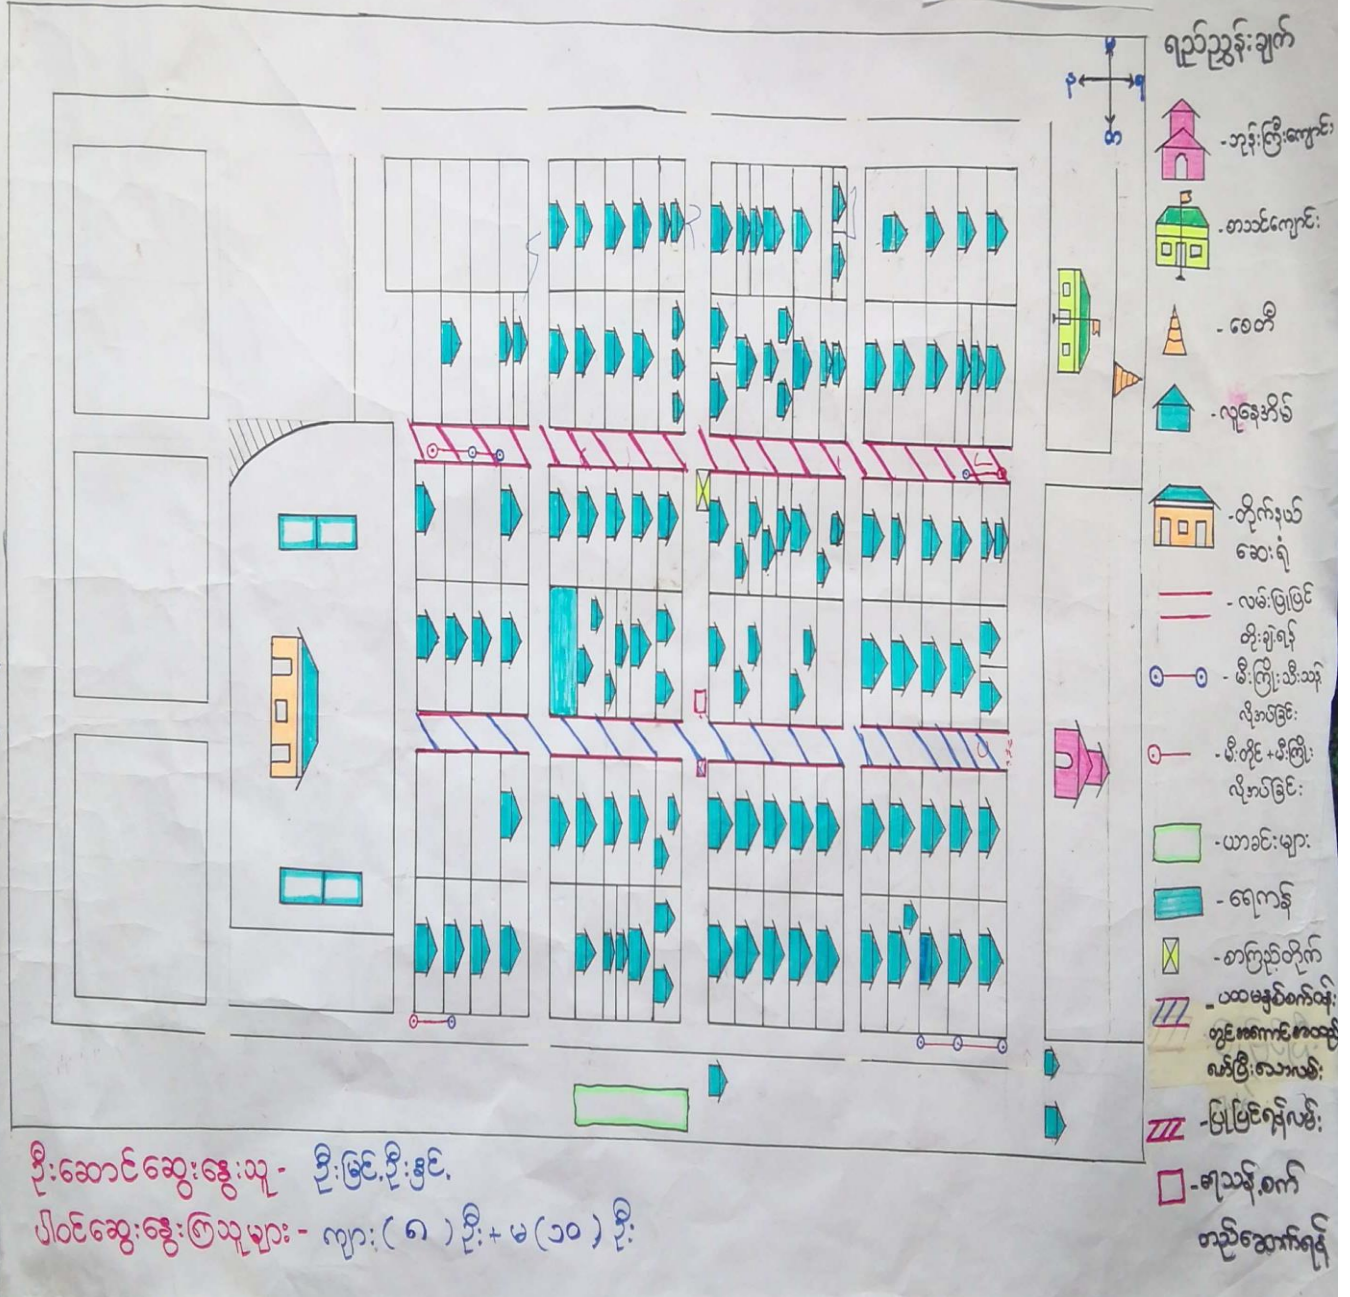 ရည်ညွှန်းချက်
မ
န
ရ
တ
-ဘုန်းကြီးကျောင်း
-စာသင်ကျောင်း
- စေတီ
-လူနေအိမ်
-တိုက်နယ်
ဆေးရုံ
- လမ်းပြုပြင်
တိုးချဲ့ရန်
- မီးကြိုးသီးသန့်
လိုအပ်ခြင်း
- မီးတိုင်+မီးကြိုး
လိုအပ်ခြင်း
-ယာခင်းများ
-ရေကန်
-စာကြည့်တိုက်
- ပထမနှစ်စက်ဝန်း
တွင်အကောင်အထည်
ဖော်ပြီးသောလမ်း
-ပြုပြင်ရန်လမ်း
-ရေသန့်စက်
တည်ဆောက်ရန်
ဦးဆောင်ဆွေးနွေးသူ- ဦးမြင့်,ဦးနှင်,
ပါဝင်ဆွေးနွေးကြသူများ- ကျား(၈)ဦး+မ(၁၀)ဦး